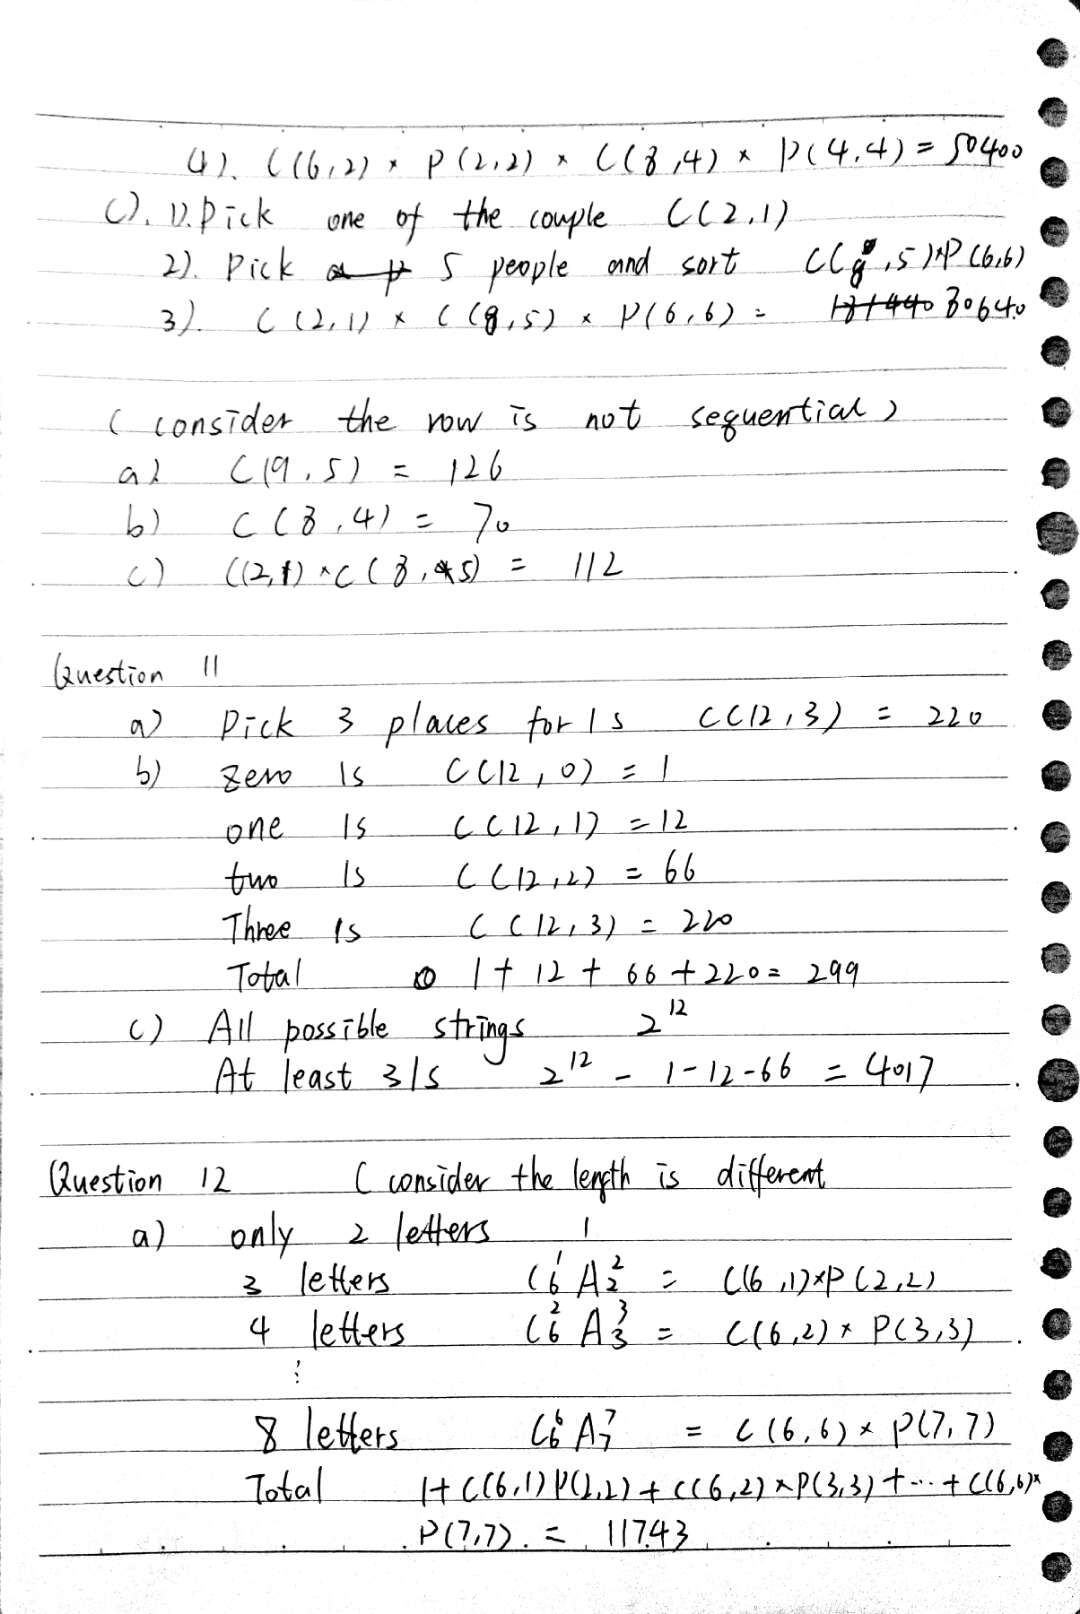 4). C(6,2) × P(2,2) × C(8,4) × P(4,4) = 50400
C). 1). Pick one of the couple C(2,1)
2). Pick 5 people and sort C(8,5)×P(6,6)
3). C(2,1) × C(8,5) × P(6,6) = 80640
(consider the row is not sequential)
a) C(9,5) = 126
b) C(8,4) = 70
c) C(2,1)×C(8,5) = 112
Question 11
a) Pick 3 places for 1s C(12,3) = 220
b) zero 1s C(12,0) = 1
one 1s C(12,1) = 12
two 1s C(12,2) = 66
Three 1s C(12,3) = 220
Total 1 + 12 + 66 + 220 = 299
c) All possible strings 2^12
At least 3 1s 2^12 - 1-12-66 = 4017
Question 12 (consider the length is different
a) only 2 letters 1
3 letters C₆¹ A₂² = C(6,1)×P(2,2)
4 letters C₆² A₃³ = C(6,2) × P(3,3)
⋮
8 letters C₆⁶ A₇⁷ = C(6,6) × P(7,7)
Total 1+C(6,1)P(2,2)+C(6,2)×P(3,3)+···+C(6,6)×
P(7,7). = 11743